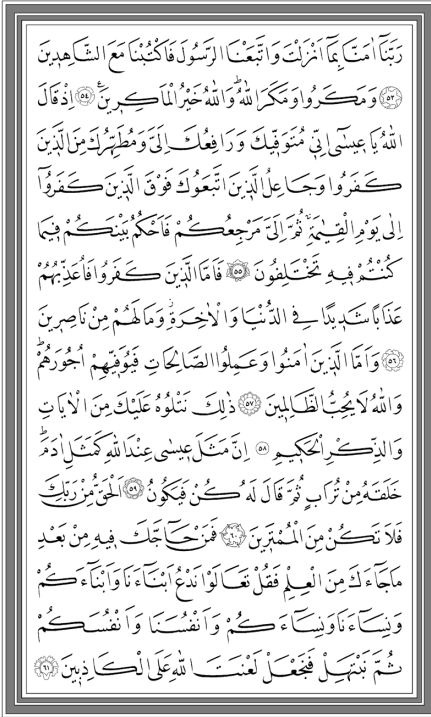 رَبَّنَٓا اٰمَنَّا بِمَٓا اَنْزَلْتَ وَاتَّبَعْنَا الرَّسُولَ فَاكْتُبْنَا مَعَ الشَّاهِدٖينَ
﴿٥٣﴾ وَمَكَرُوا وَمَكَرَ اللّٰهُؕ وَاللّٰهُ خَيْرُ الْمَاكِرٖينَࣖ ﴿٥٤﴾ اِذْ قَالَ
اللّٰهُ يَا عٖيسٰٓى اِنّٖي مُتَوَفّٖيكَ وَرَافِعُكَ اِلَيَّ وَمُطَهِّرُكَ مِنَ الَّذٖينَ
كَفَرُوا وَجَاعِلُ الَّذٖينَ اتَّبَعُوكَ فَوْقَ الَّذٖينَ كَفَرُٓوا
اِلٰى يَوْمِ الْقِيٰمَةِۚ ثُمَّ اِلَيَّ مَرْجِعُكُمْ فَاَحْكُمُ بَيْنَكُمْ فٖيمَا
كُنْتُمْ فٖيهِ تَخْتَلِفُونَ ﴿٥٥﴾ فَاَمَّا الَّذٖينَ كَفَرُوا فَاُعَذِّبُهُمْ
عَذَابًا شَدٖيدًا فِي الدُّنْيَا وَالْاٰخِرَةِؗ وَمَا لَهُمْ مِنْ نَاصِرٖينَ
﴿٥٦﴾ وَاَمَّا الَّذٖينَ اٰمَنُوا وَعَمِلُوا الصَّالِحَاتِ فَيُوَفّٖيهِمْ اُجُورَهُمْؕ
وَاللّٰهُ لَا يُحِبُّ الظَّالِمٖينَ ﴿٥٧﴾ ذٰلِكَ نَتْلُوهُ عَلَيْكَ مِنَ الْاٰيَاتِ
وَالذِّكْرِ الْحَكٖيمِ ﴿٥٨﴾ اِنَّ مَثَلَ عٖيسٰى عِنْدَ اللّٰهِ كَمَثَلِ اٰدَمَؕ
خَلَقَهُ مِنْ تُرَابٍ ثُمَّ قَالَ لَهُ كُنْ فَيَكُونُ ﴿٥٩﴾ اَلْحَقُّ مِنْ رَبِّكَ
فَلَا تَكُنْ مِنَ الْمُمْتَرٖينَ ﴿٦٠﴾ فَمَنْ حَٓاجَّكَ فٖيهِ مِنْ بَعْدِ
مَا جَٓاءَكَ مِنَ الْعِلْمِ فَقُلْ تَعَالَوْا نَدْعُ اَبْنَٓاءَنَا وَاَبْنَٓاءَكُمْ
وَنِسَٓاءَنَا وَنِسَٓاءَكُمْ وَاَنْفُسَنَا وَاَنْفُسَكُمْ
ثُمَّ نَبْتَهِلْ فَنَجْعَلْ لَعْنَتَ اللّٰهِ عَلَى الْكَاذِبٖينَ ﴿٦١﴾